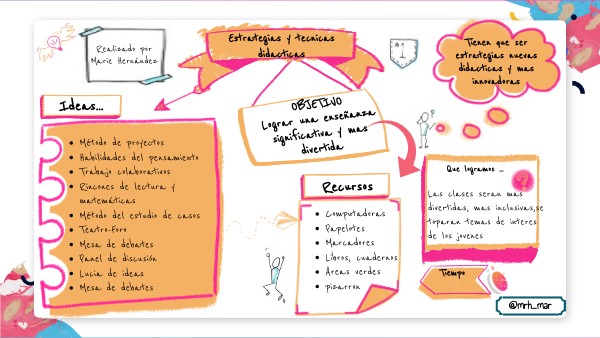 Realizado por
Marie Hernández
Estrategias y tecnicas
didacticas
Tienen que ser
estrategias nuevas
didacticas y mas
innovadoras
Ideas...
OBJETIVO
Lograr una enseñanza
significativa y mas
divertida
Método de proyectos
Habilidades del pensamiento
Trabajo colaborativos
Rincones de lectura y
matemáticas
Método del estudio de casos
Teatro-foro
Mesa de debates
Panel de discusión
Lucia de ideas
Mesa de debates
Recursos
Computadoras
Papelotes
Marcadores
Libros, cuadernos
Areas verdes
pizarron
Que logramos ...
Las clases seran mas
divertidas, mas inclusivas,se
toparan temas de interes
de los jovenes
Tiempo
@mrh_mar